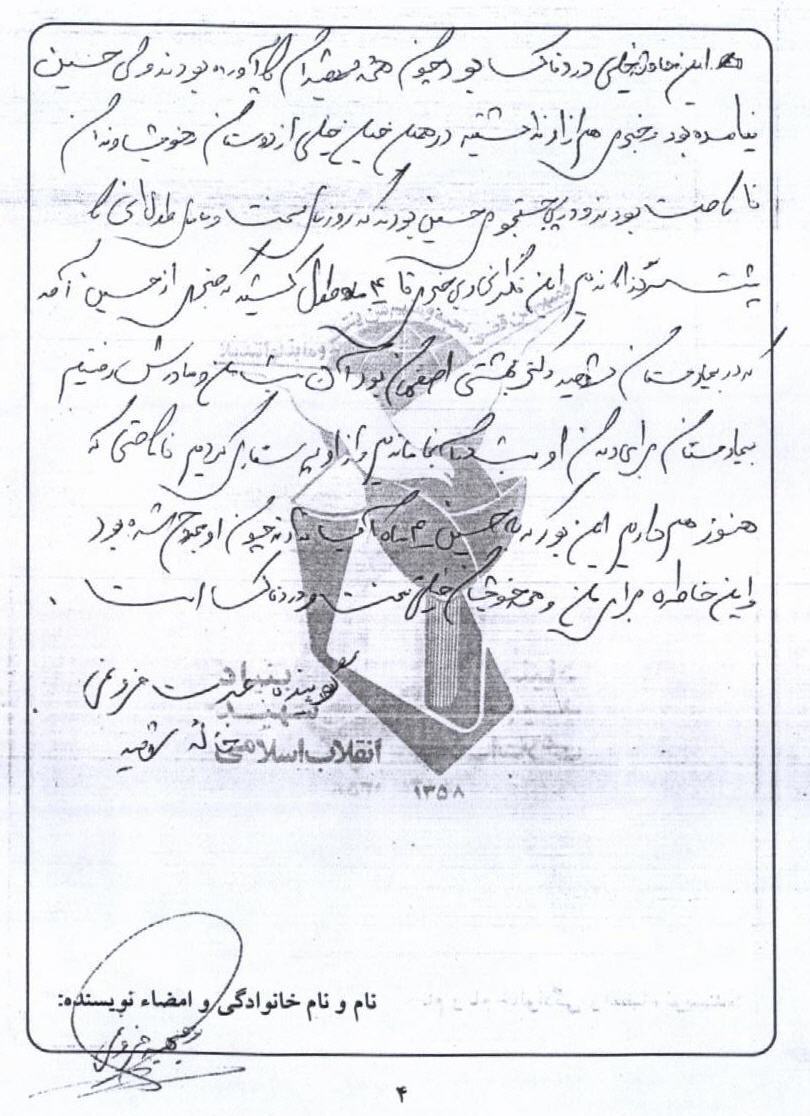 این حادثه خیلی دردناک بود چون همه شهیدان را آورده بودند ولی حسین
نیامده بود و خبری هم از او نداشتیم در همان خیلی از دوستان و خویشاوندان
ناراحت بودند و در پی جستجوی حسین بودند که روزهای سخت و طولانی را
پشت سر گذاندیم این نگرانی و بی خبری تا ۴ ماه طول کشید که خبری از حسین آمد
که در بیمارستان شهید دکتر بهشتی اصفهان بود آن و مادرش رفتیم
بیمارستان برای دیدن او آنجا ماندیم و از او پرستاری کردیم ناراحتی که
هنوز هم داریم این بود که حسین ۴ ماه چون او مجروح شده بود
و این خاطره برای من و همه خیلی سخت و دردناک است .
گوینده عزت
خاله شهید
بنیاد
شهید
انقلاب اسلامی
۱۳۵۸
نام و نام خانوادگی و امضاء نویسنده:
۴